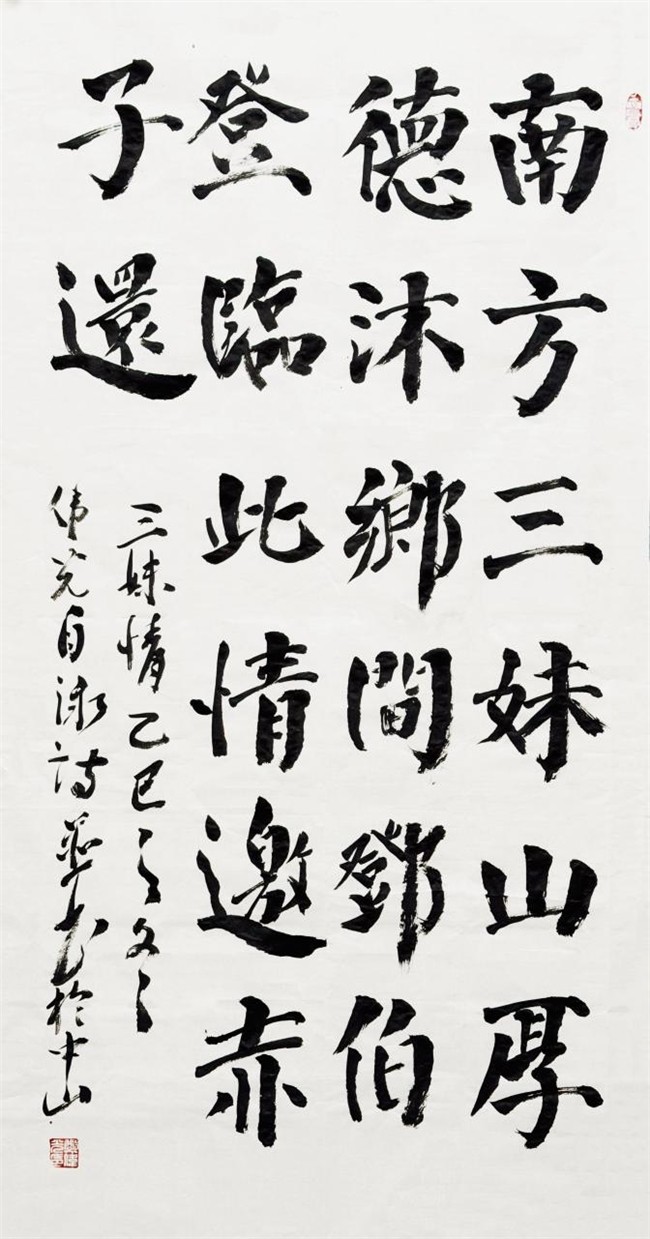 南方三妹山厚
德沐鄉間鄧伯
登臨此情邀赤
子還
三妹情乙巳之冬
伟光自诗并书於中山